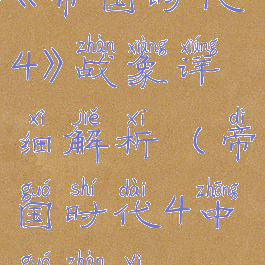 《帝国时代
zhàn xiàng xiáng
4》战象详
xì jiě xī dì
细解析（帝
guó shí dài zhōng
国时代4中
guó zhàn yì